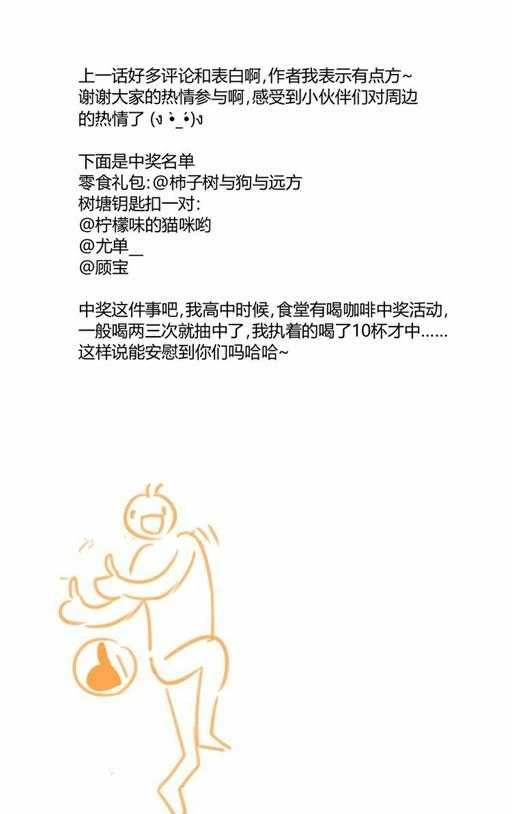 上一话好多评论和表白啊,作者我表示有点方~
谢谢大家的热情参与啊,感受到小伙伴们对周边
的热情了 (ง •̀_•́)ง
下面是中奖名单
零食礼包:@柿子树与狗与远方
树塘钥匙扣一对:
@柠檬味的猫咪哟
@尤单__
@顾宝
中奖这件事吧,我高中时候,食堂有喝咖啡中奖活动,
一般喝两三次就抽中了,我执着的喝了10杯才中……
这样说能安慰到你们吗哈哈~